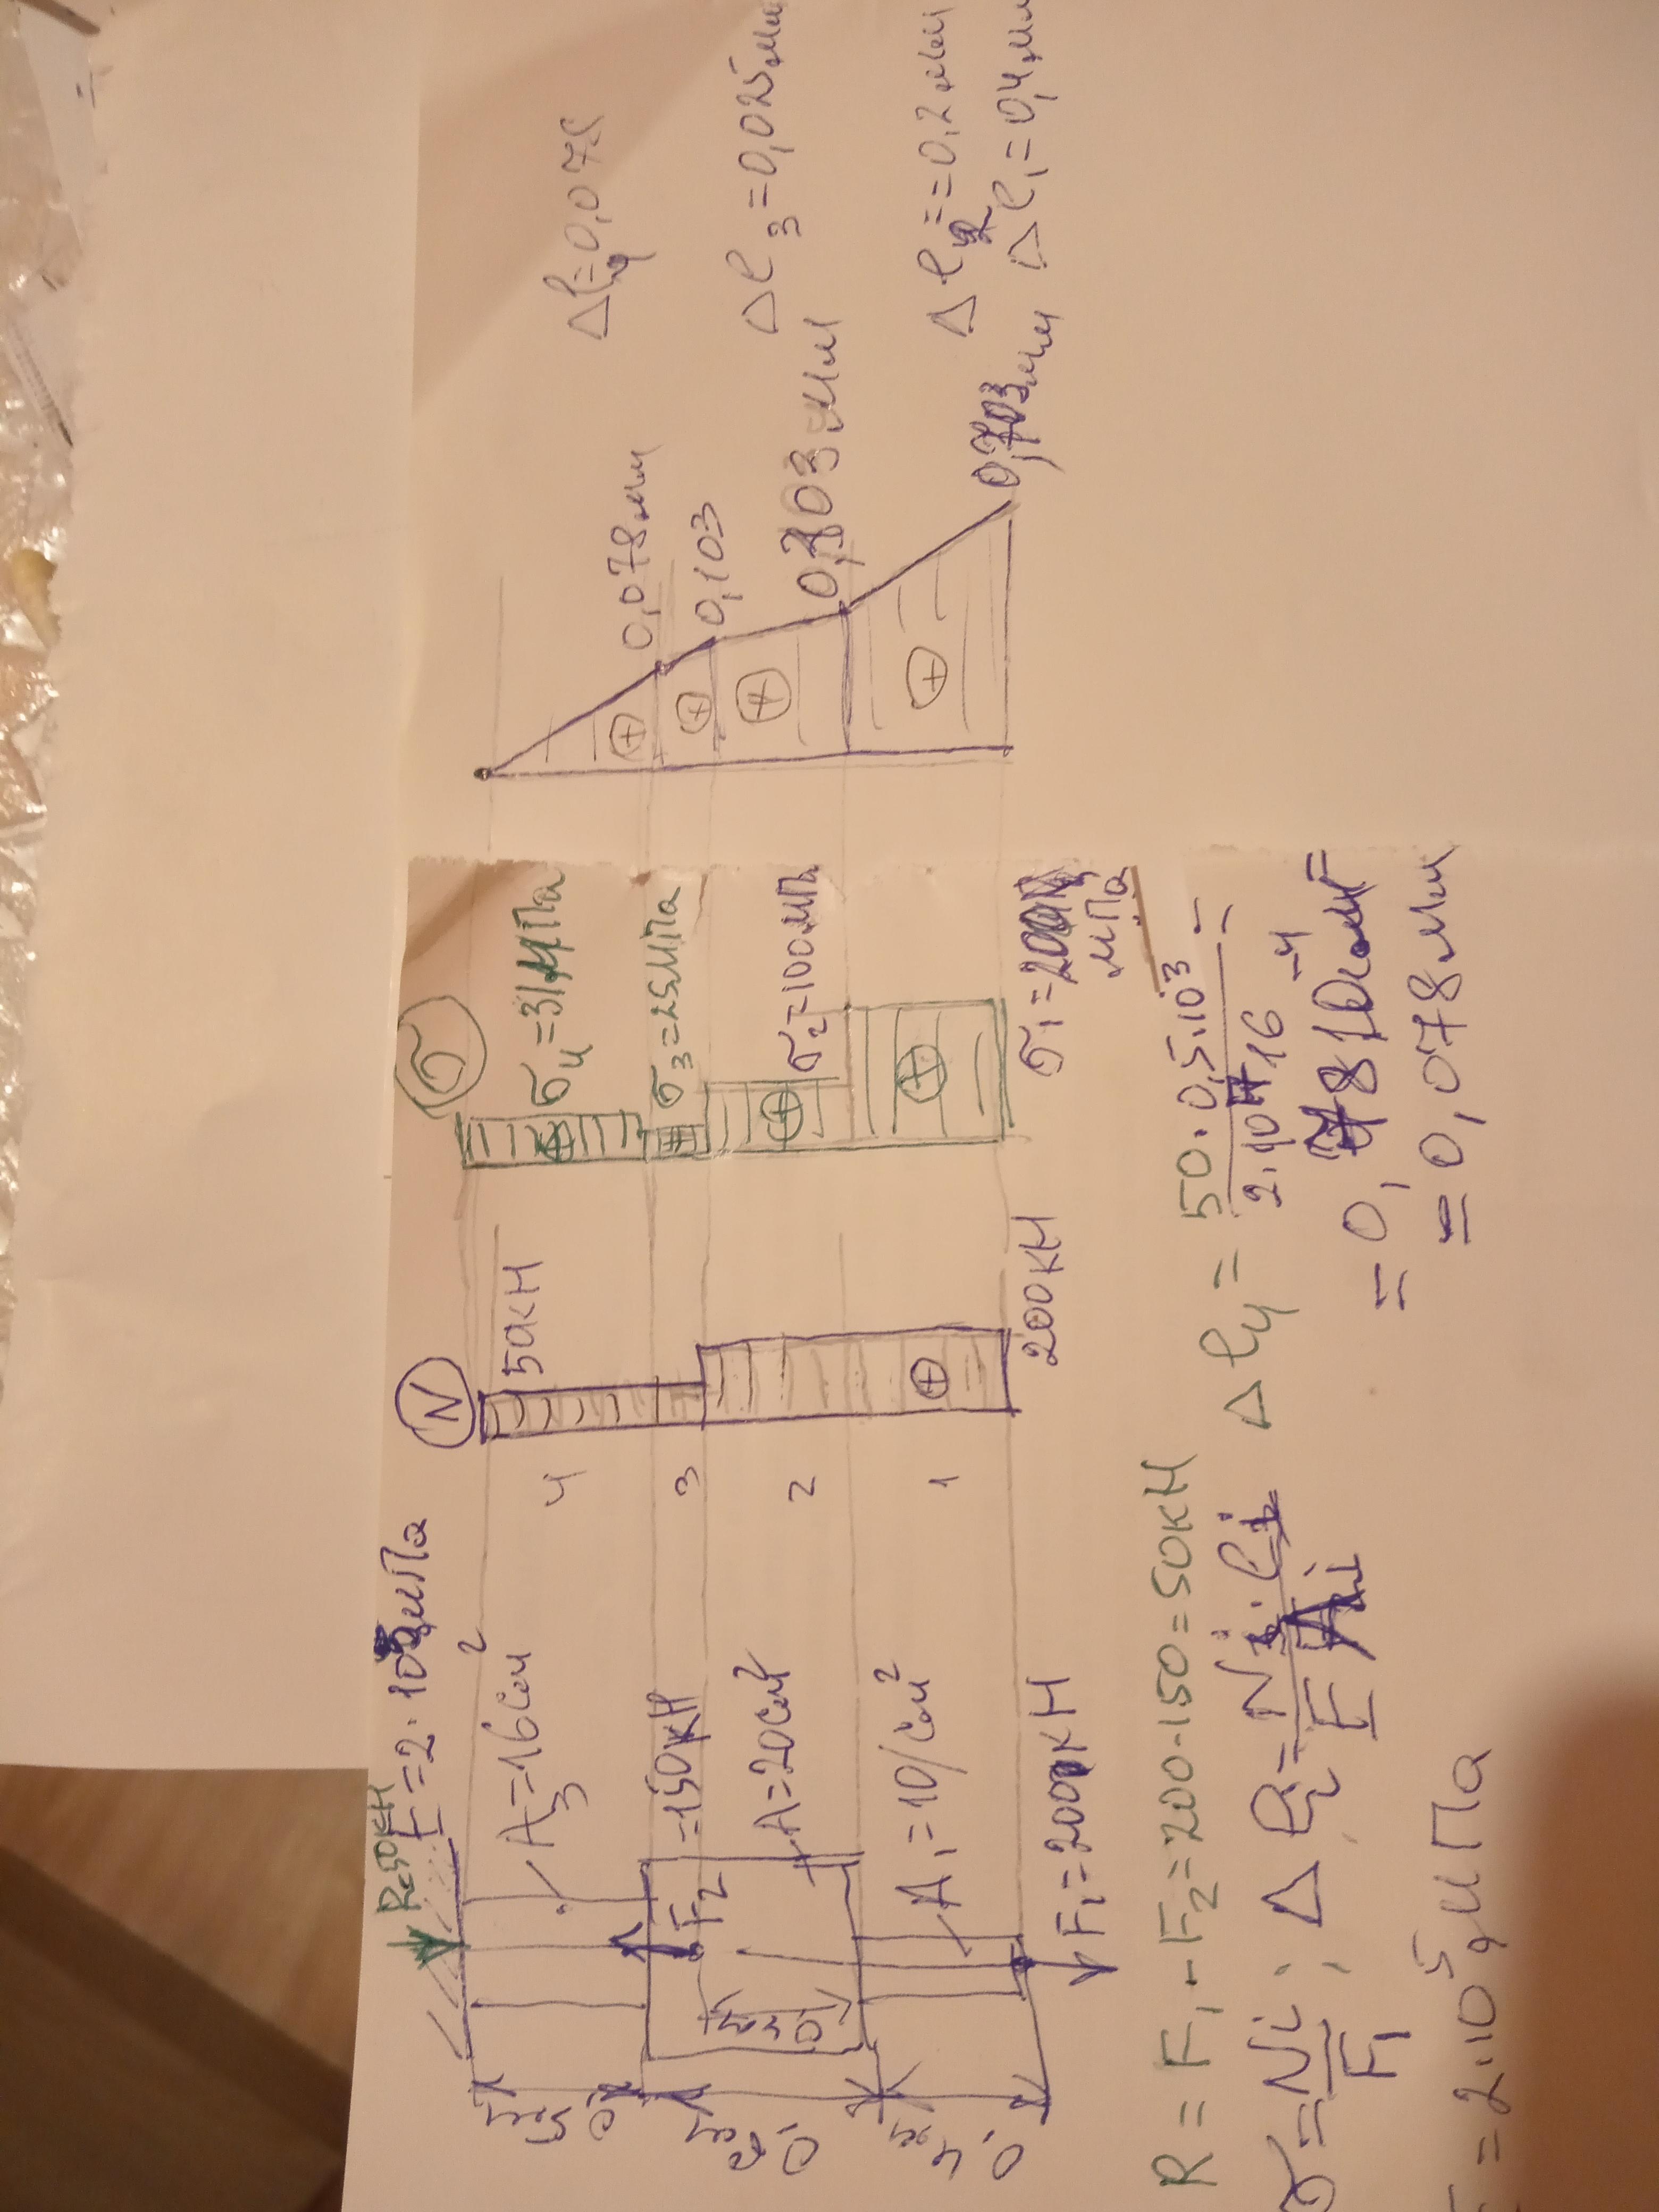 R=50кН
E=2·10⁵МПа
A₃=16см²
F₂=150кН
A=20см²
A₁=10см²
F₁=200кН
0,5м
0,4м
4
3
2
1
N
50кН
200кН
σ
σ₄=31МПа
σ₃=25МПа
σ₂=100МПа
σ₁=200
МПа
0,078мм
0,103
0,303мм
0,703мм
Δℓ₄=0,078
Δℓ₃=0,025мм
Δℓ₂=0,2мм
Δℓ₁=0,4мм
R=F₁-F₂=200-150=50кН
σ=Nᵢ/F₁; Δℓᵢ=Nᵢ·ℓᵢ/E Aᵢ
=2·10⁵МПа
Δℓ₄=50·0,5·10³
=0,078мм